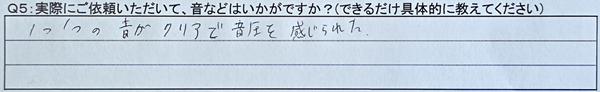 Q5:実際にご依頼いただいて、音などはいかがですか?(できるだけ具体的に教えてください)
1つ1つの音がクリアで音圧を感じられた.